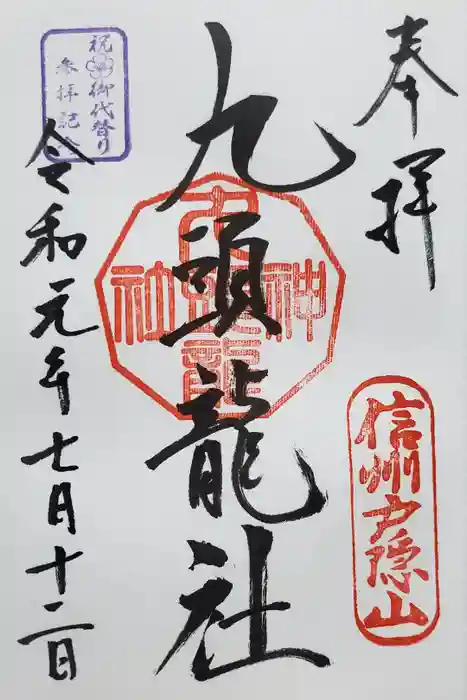 奉拝
信州戸隠山
九頭龍社
九頭龍
神社
祝御代替り
参拝記念
令和元年七月十二日